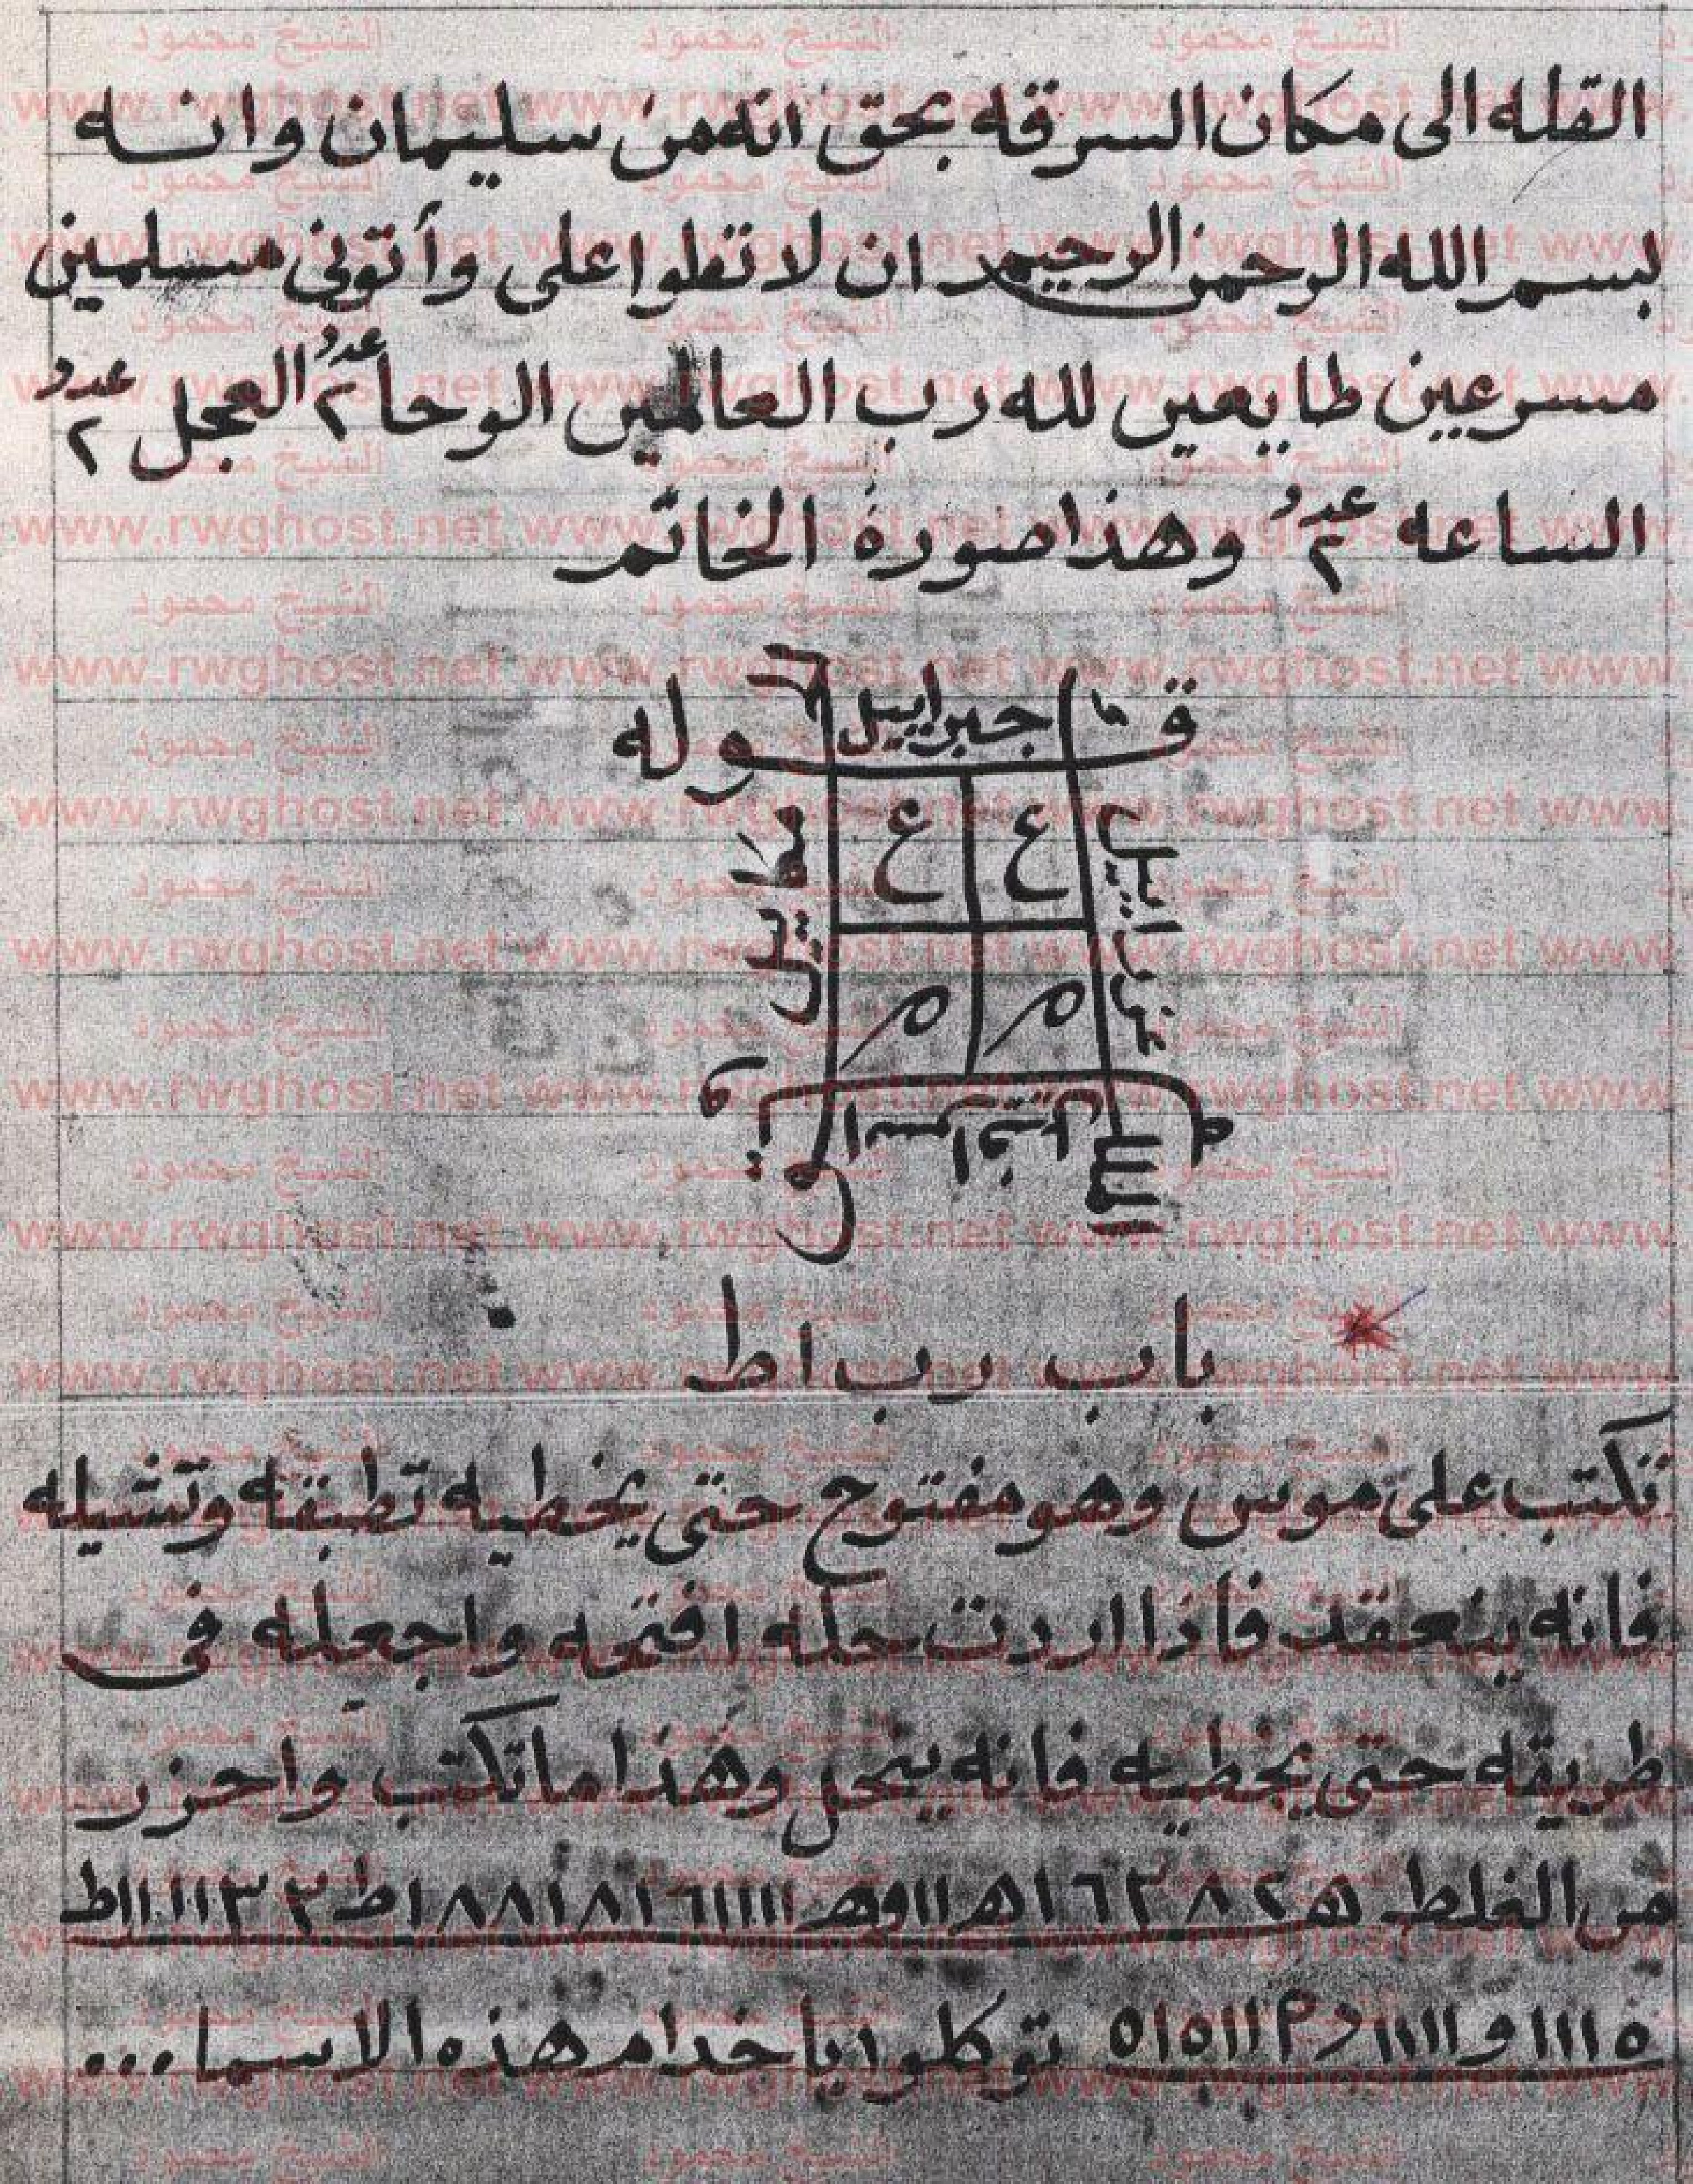 القله الى مكان السرقه بحق انه من سليمان وانه
بسم الله الرحمن الرحيم ان لا تعلوا على وأتونى مسلمين
مسرعين طايعين لله رب العالمين الوحا عدد ٢ العجل عدد ٢
الساعه عدد ٢ وهذا صورة الخاتم
قوله
جبراييل
ع ع
م م
عزراييل
ميكاييل
اسرافيل
الحق
الله
باب رباط
تكتب على موس وهو مفتوح حتى يخطيه تطبقه وتشيله
فانه ينعقد فاذا اردت حله افتحه واجعله فى
طريقه حتى يخطيه فانه ينحل وهذا ما تكتب واحزر
من الغلط ھ ٢ ٨ ٣ ٦ ١ ھ ١١ وھ ١١١١١ ٦ ١ ٨ ١ ٨ ٨ ١ ط ٣ ٣ ١١١ ١١ ط
٥ ١١١ و ١١١١١ ١١ ٥ ١ ٥ توكلوا يا خدام هذه الاسما...
الشيخ محمود
www.rwghost.net